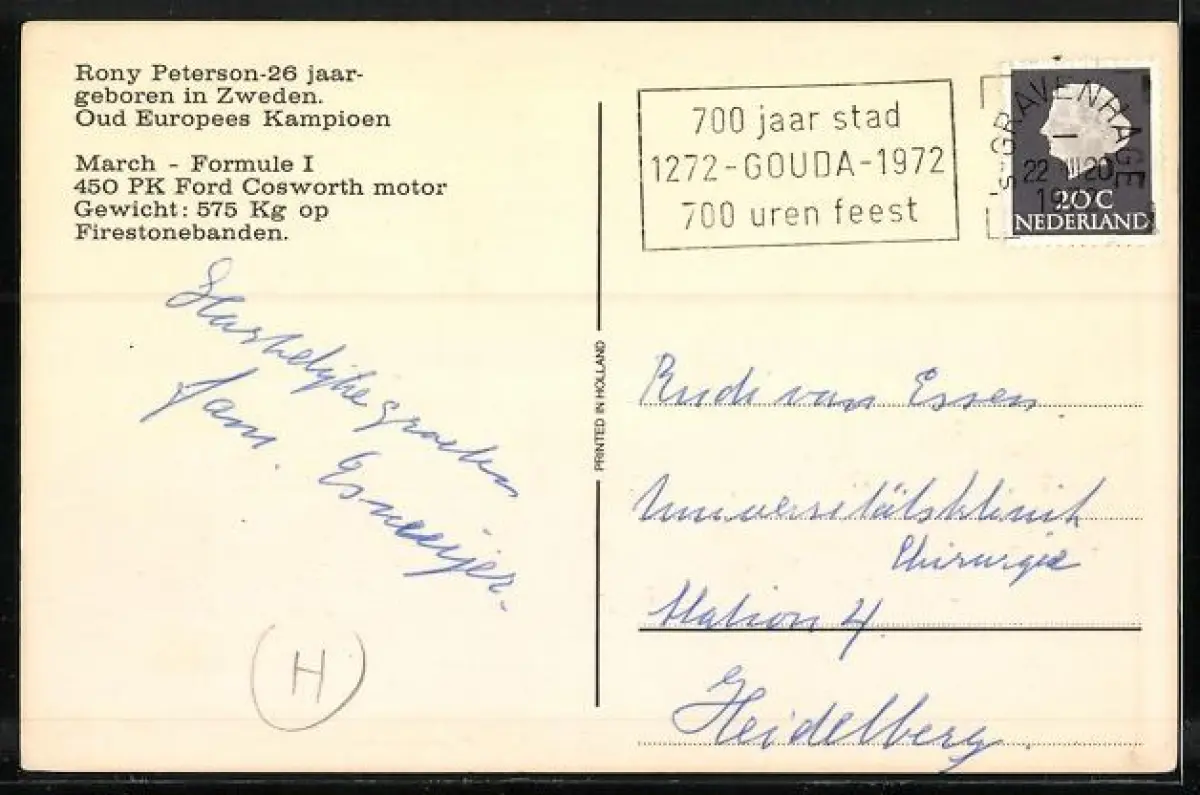 Rony Peterson-26 jaar-
geboren in Zweden.
Oud Europees Kampioen
March - Formule I
450 PK Ford Cosworth motor
Gewicht: 575 Kg op
Firestonebanden.
700 jaar stad
1272-GOUDA-1972
700 uren feest
's-GRAVENHAGE
1
22 VII 20
1972
20C
NEDERLAND
Hartelijke groeten
Jan. Esmeijer.
PRINTED IN HOLLAND
Rudi van Essen
Universitätsklinik
Chirurgie
Station 4
Heidelberg.
H